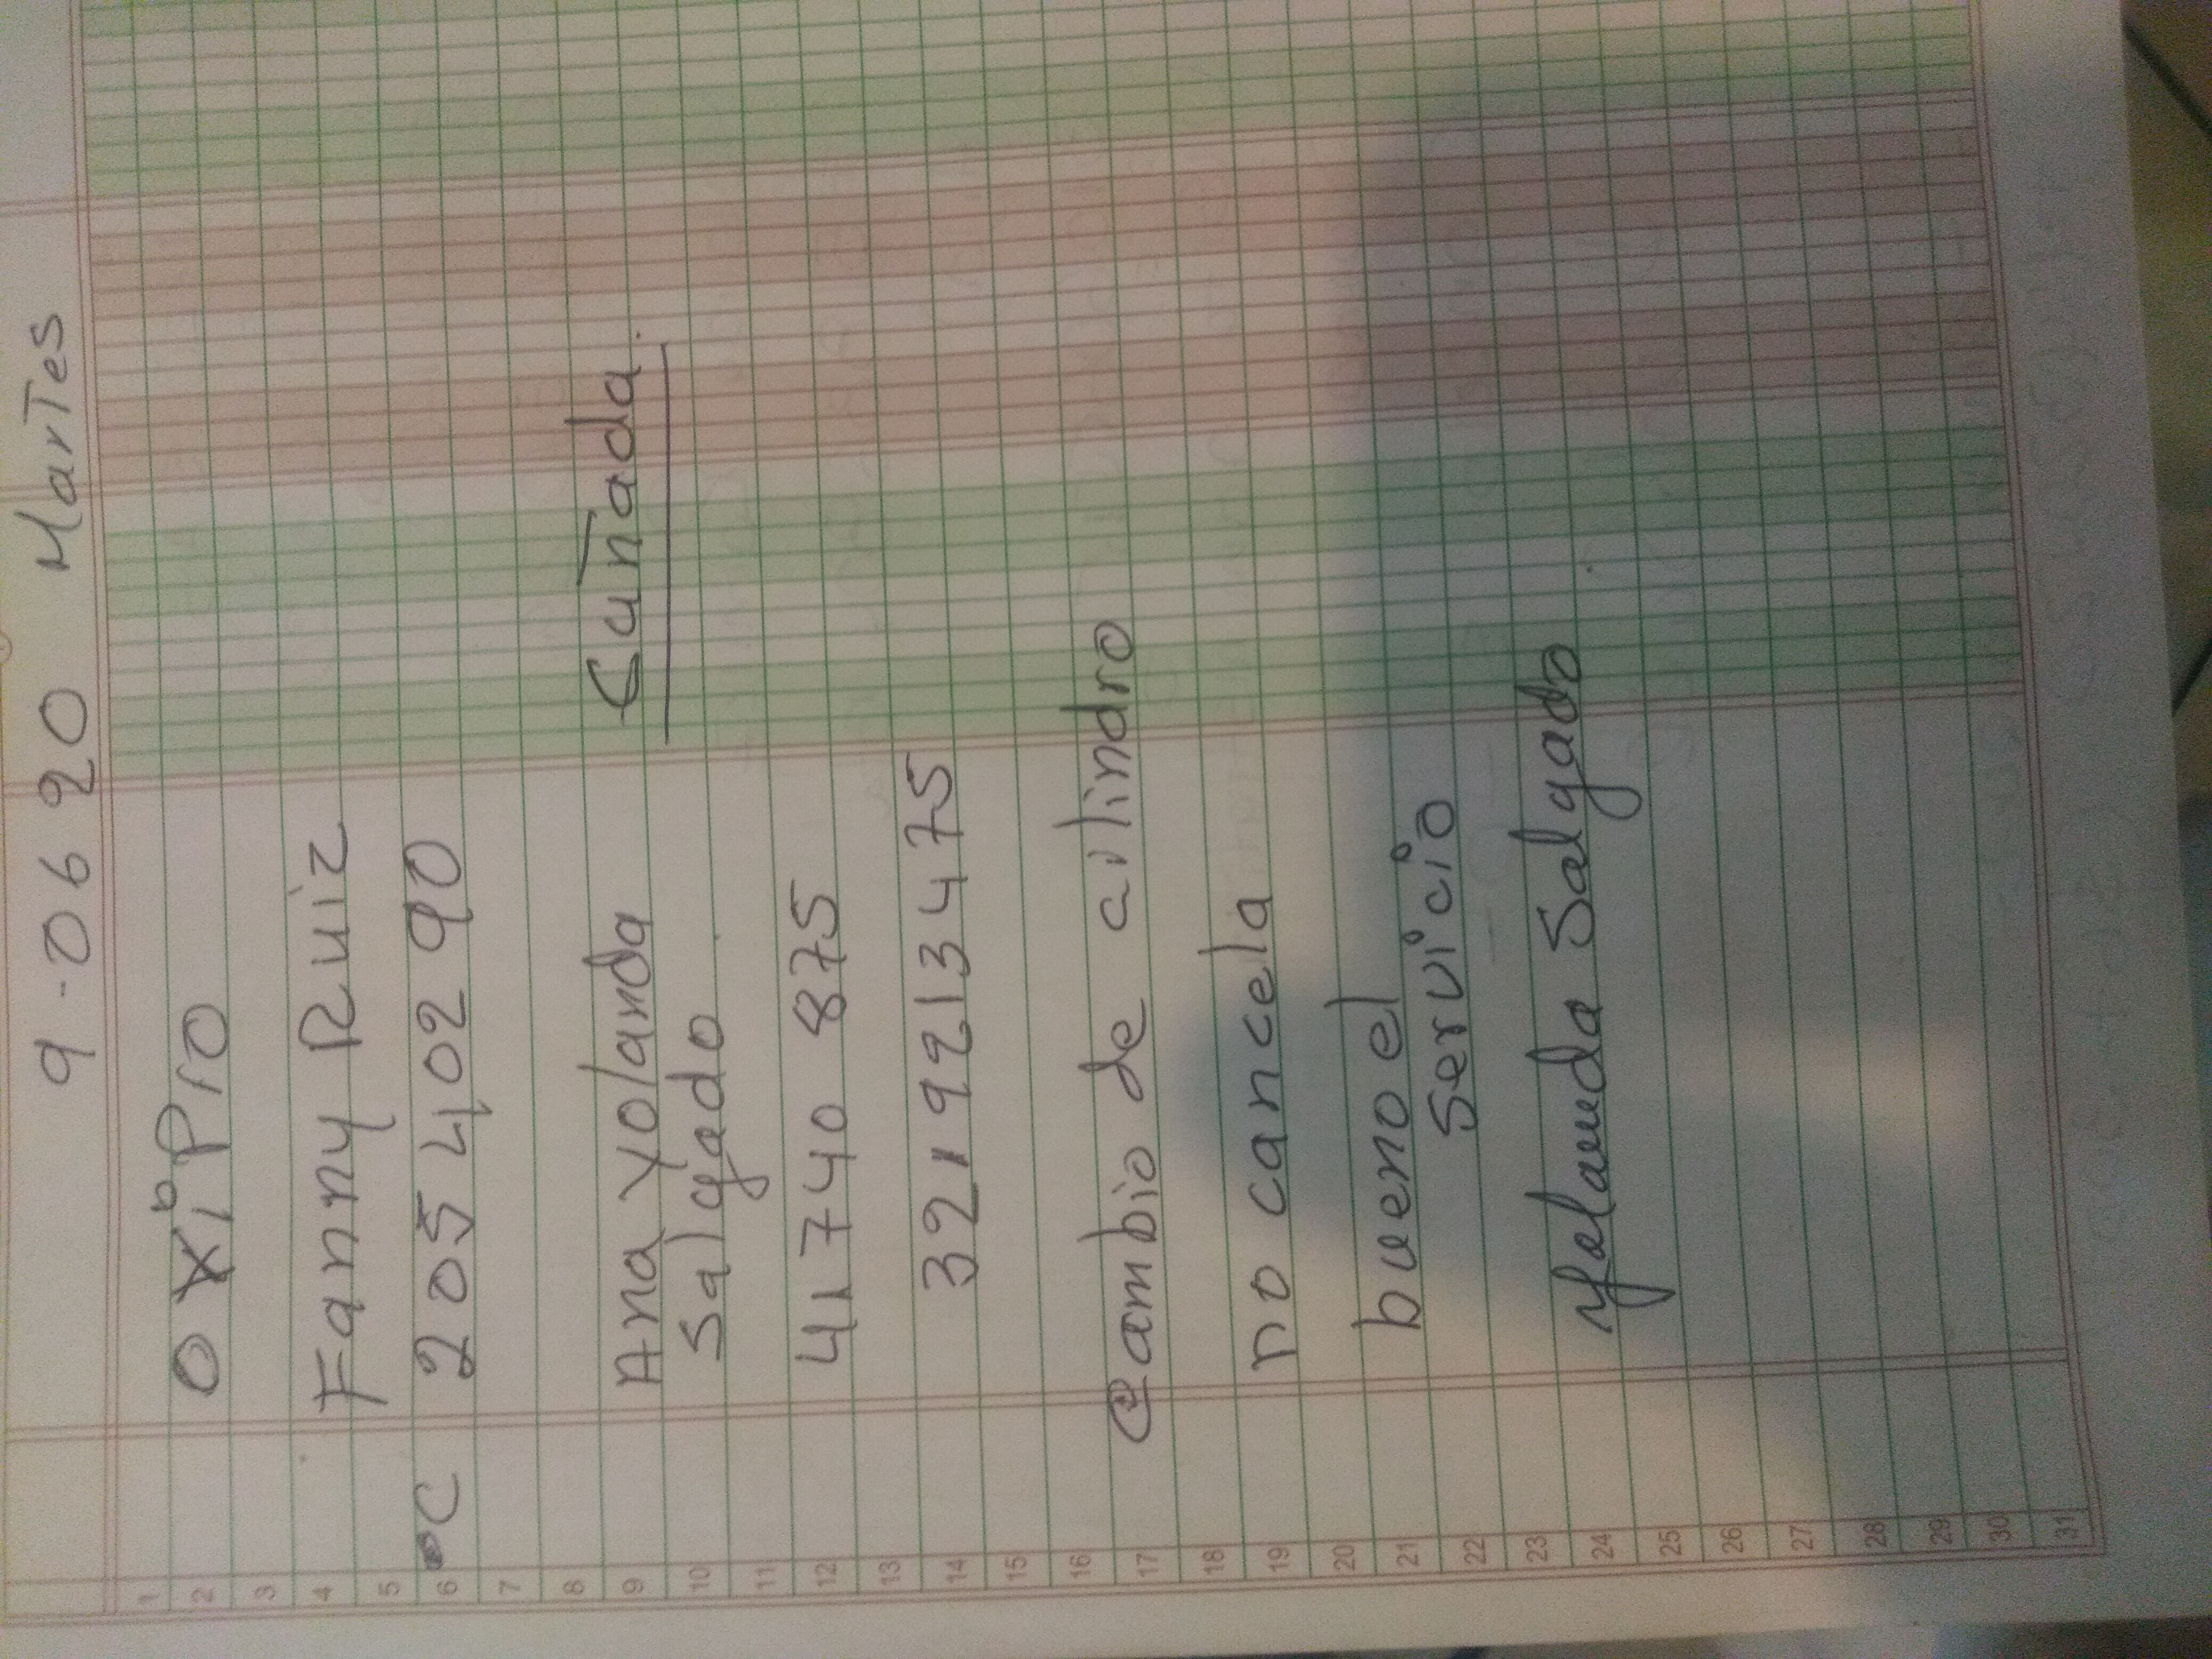 9-06 20 Martes
OXiPro
Fanny Ruiz
C 205 402 90
Ana Yolanda
Salgado
Cuñada.
41740 875
321 9213475
Cambio de cilindro
no cancela
bueno el
servicio
Yolanda Salgado
1
2
3
4
5
6
7
8
9
10
11
12
13
14
15
16
17
18
19
20
21
22
23
24
25
26
27
28
29
30
31